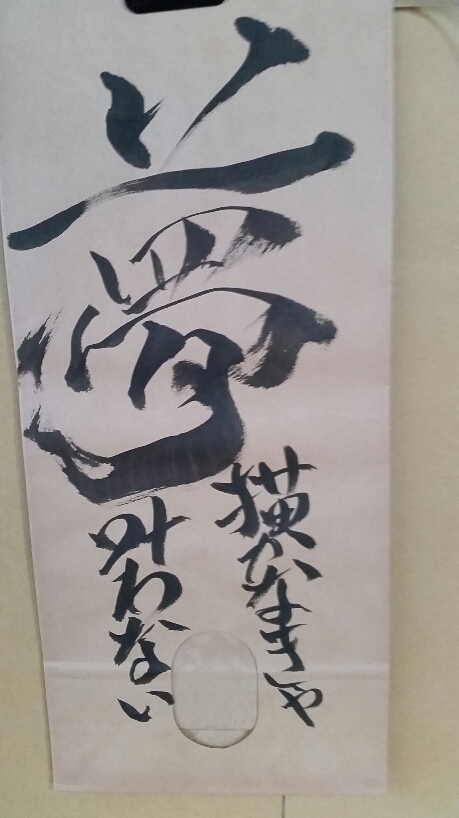 夢
描かなきゃ
叶わない